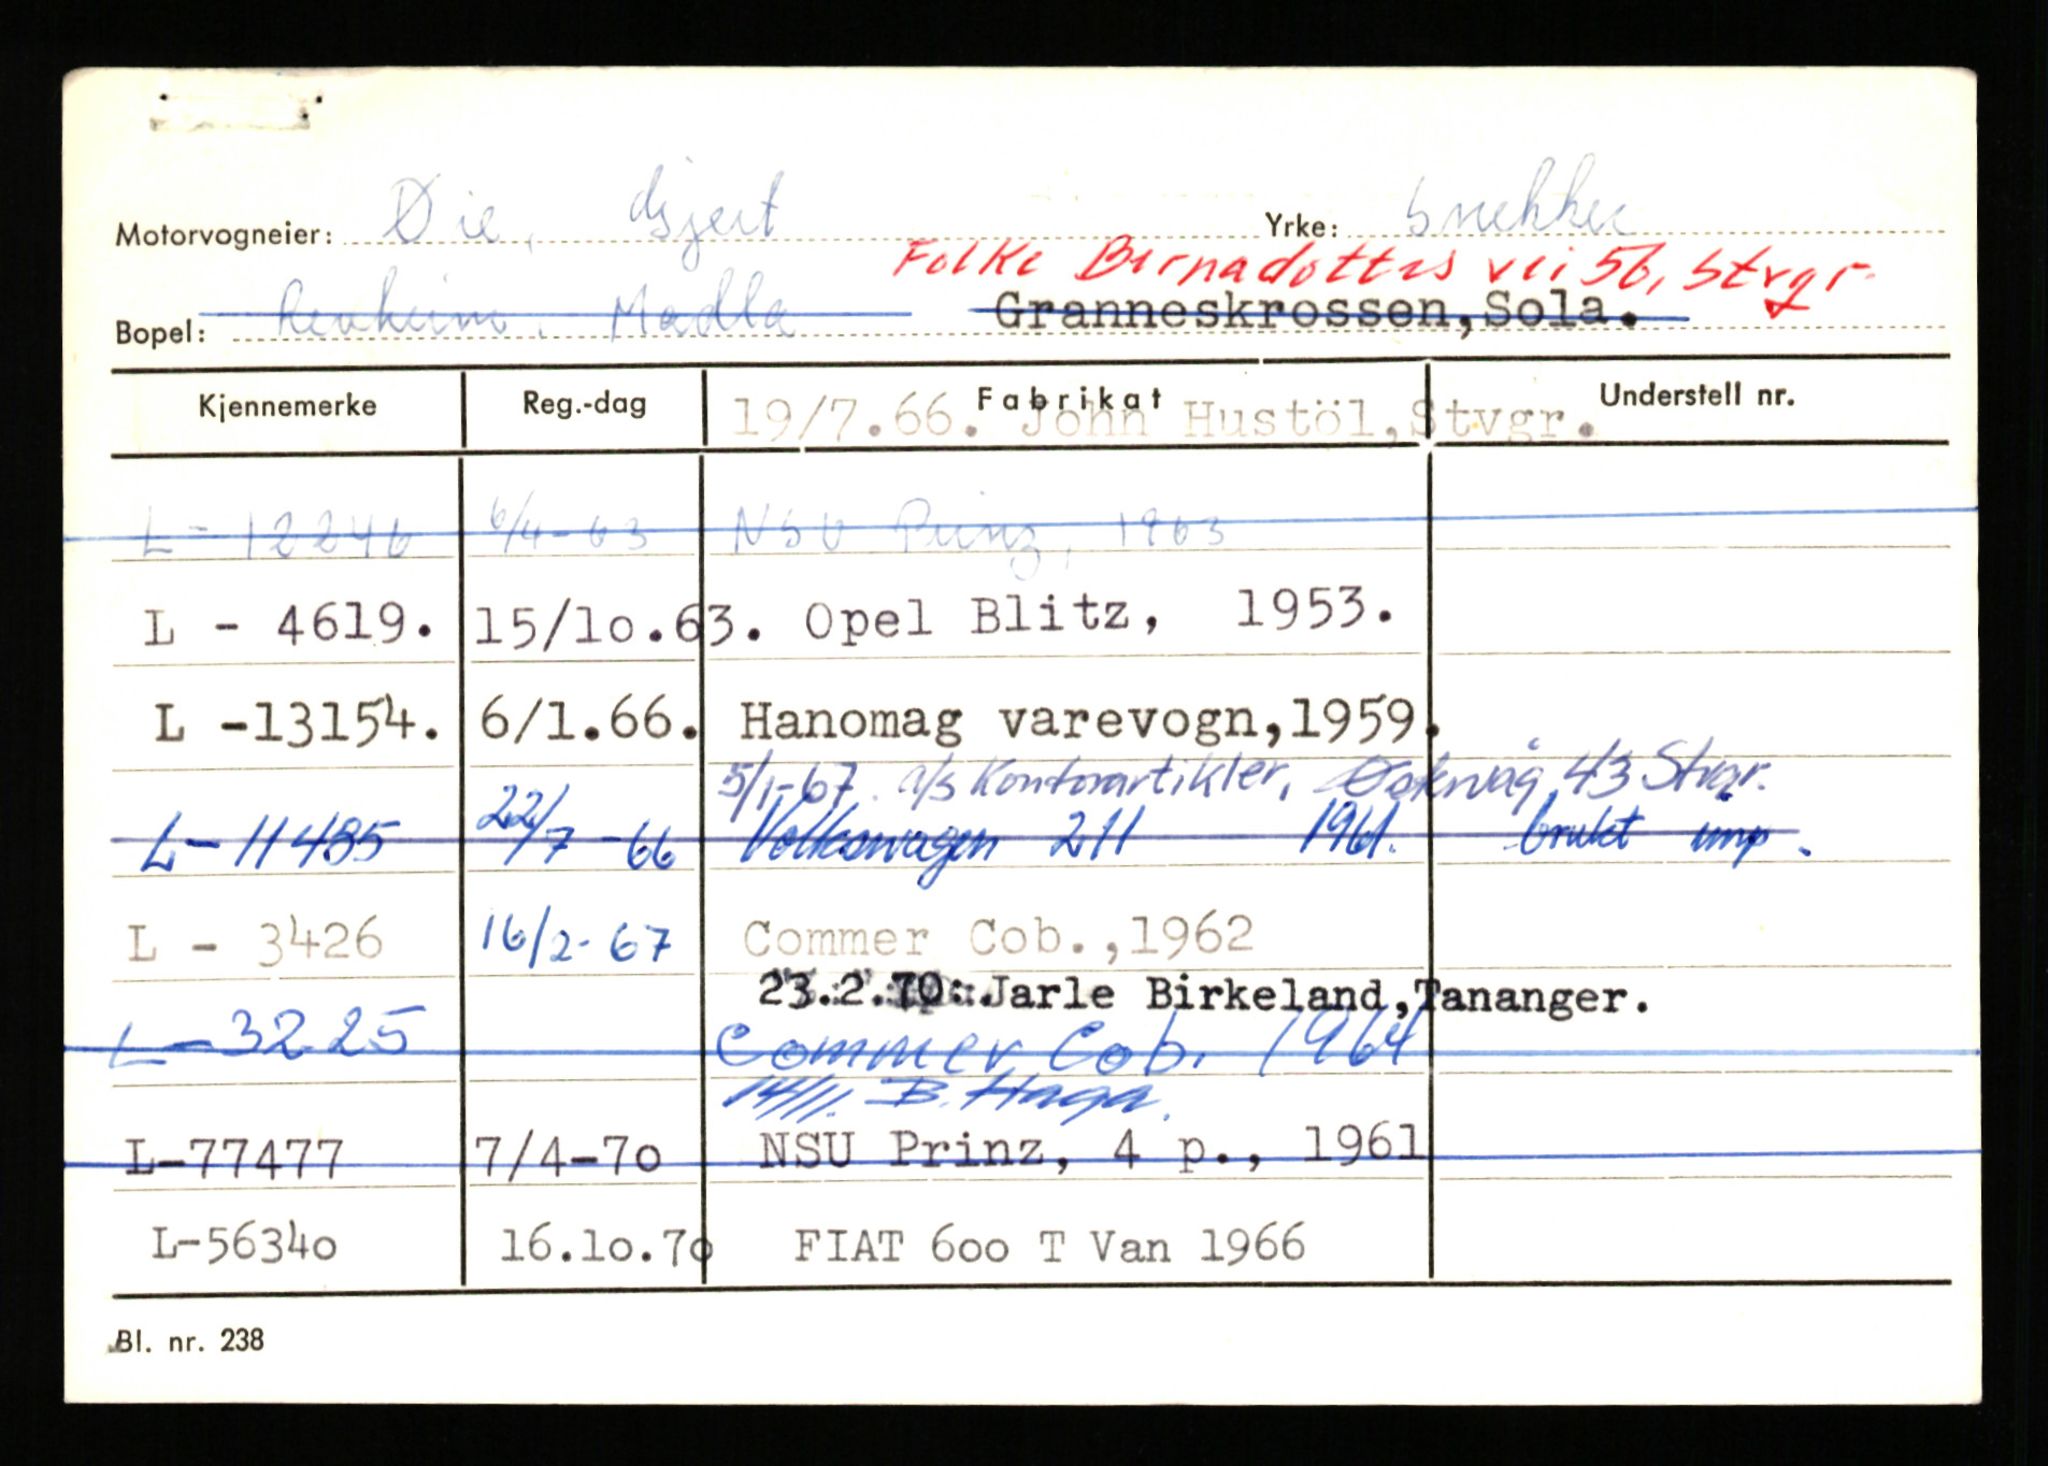 Motorvogneier: Øie, Yrke: Snekker
Folke Bernadottes vei 56, Stvgr.
Bopel: Madla Granneskrossen,Sola.
Kjennemerke Reg.-dag Fabrikat Understell nr.
19/7.66. John Hustöl,Stvgr.
L - 12246 6/4-63 NSU Prinz, 1963
L - 4619. 15/10.63. Opel Blitz, 1953.
L -13154. 6/1.66. Hanomag varevogn,1959.
5/1-67. a/s Kontorartikler, 43 Stvgr.
L-11485 22/7-66 Volkswagen 211 1961. brukt imp.
L - 3426 16/2-67 Commer Cob.,1962
23.2.70: Jarle Birkeland,Tananger.
L-3225 Commer Cob. 1964
14/11. B. Haga.
L-77477 7/4-70 NSU Prinz, 4 p., 1961
L-56340 16.10.70 FIAT 600 T Van 1966
Bl. nr. 238